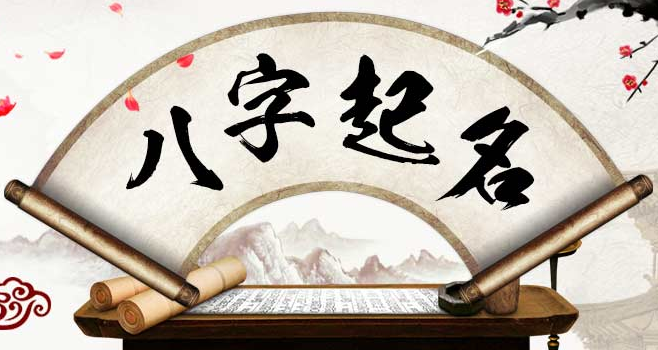 八字起名